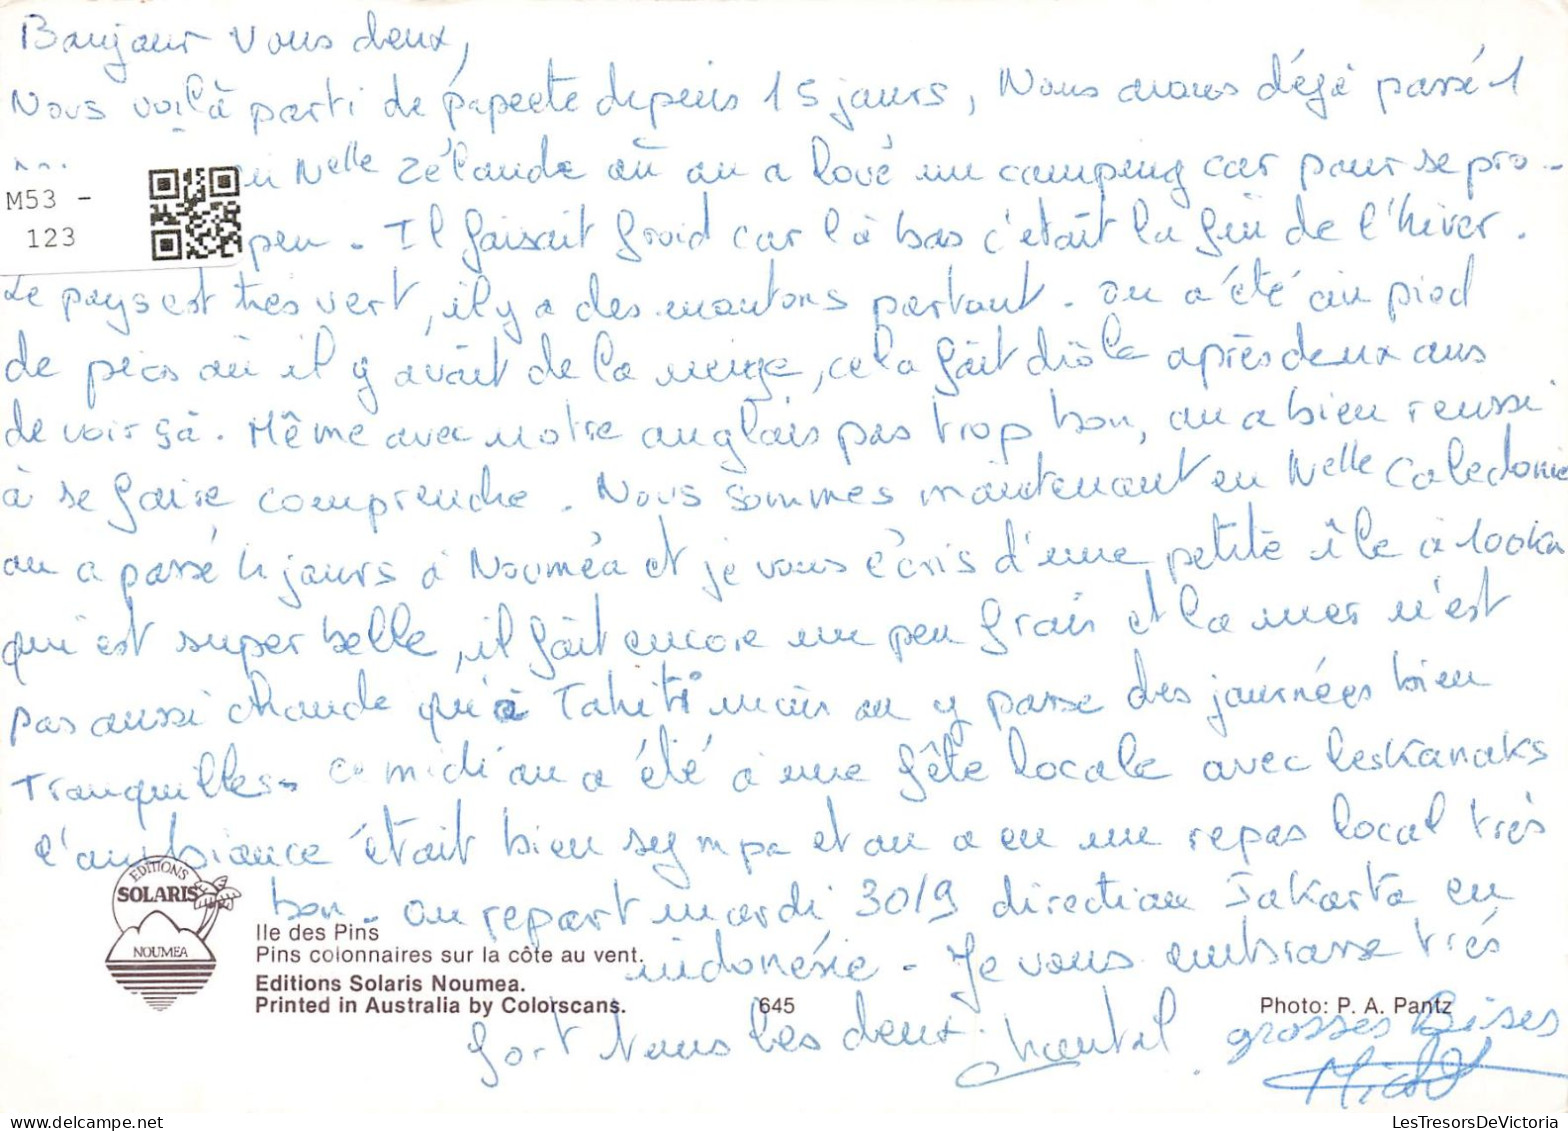 Bonjour Vous deux,
Nous voilà parti de papeete depuis 15 jours, Nous avons déjà passé 1
en Nelle Zélande où on a loué un camping car pour se pro-
M53 -
123
peu. Il faisait froid car là bas c'était la fin de l'hiver.
Le pays est très vert, il y a des moutons partout. on a été au pied
de pics où il y avait de la neige, cela fait drôle après deux ans
de voir çà. Même avec notre anglais pas trop bon, on a bien reussi
à se faire comprendre. Nous sommes maintenant en Nelle Caledonie
on a passé 4 jours à Nouméa et je vous écris d'une petite île à 100km
qui est super belle, il fait encore un peu frais et la mer n'est
pas aussi chaude qu'à Tahiti mais on y passe des journées bien
Tranquilles. Ce midi on a été à une fête locale avec les Kanaks
l'ambiance était bien sympa et on a eu un repas local très
bon. on repart mardi 30/9 direction Jakarta en
indonésie. Je vous embrasse très
fort tous les deux. Chantal grosses Bises
EDITIONS
SOLARIS
NOUMEA
Ile des Pins
Pins colonnaires sur la côte au vent.
Editions Solaris Noumea.
Printed in Australia by Colorscans.
645
Photo: P. A. Pantz
LesTresorsDeVictoria